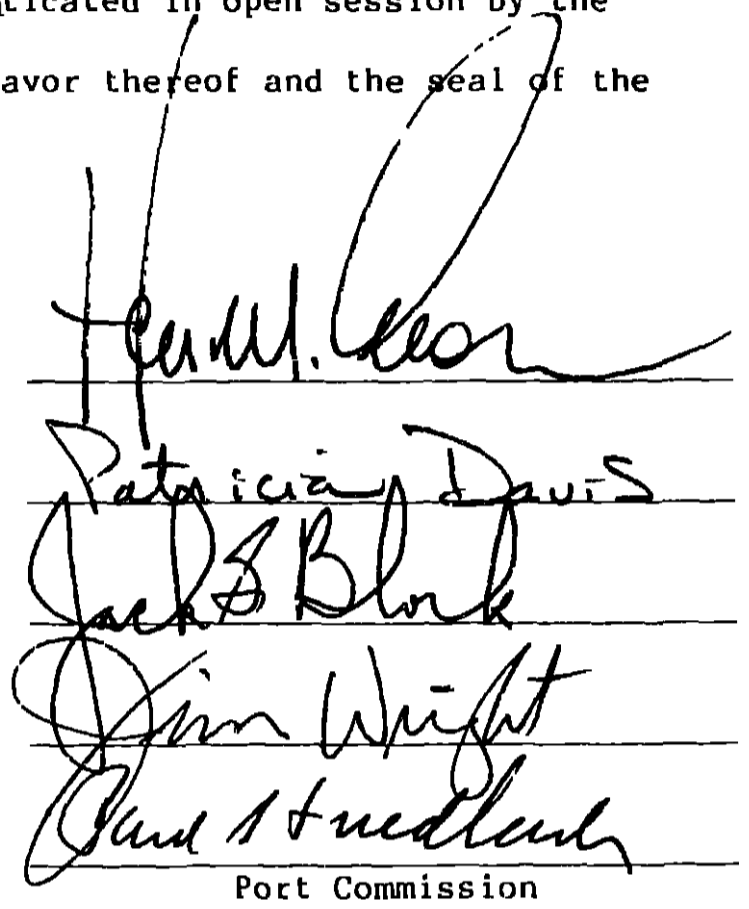 ticated in open session by the
avor thereof and the seal of the
Patricia Davis
Jack S Block
Jim Wright
Paul S Friedlander
Port Commission